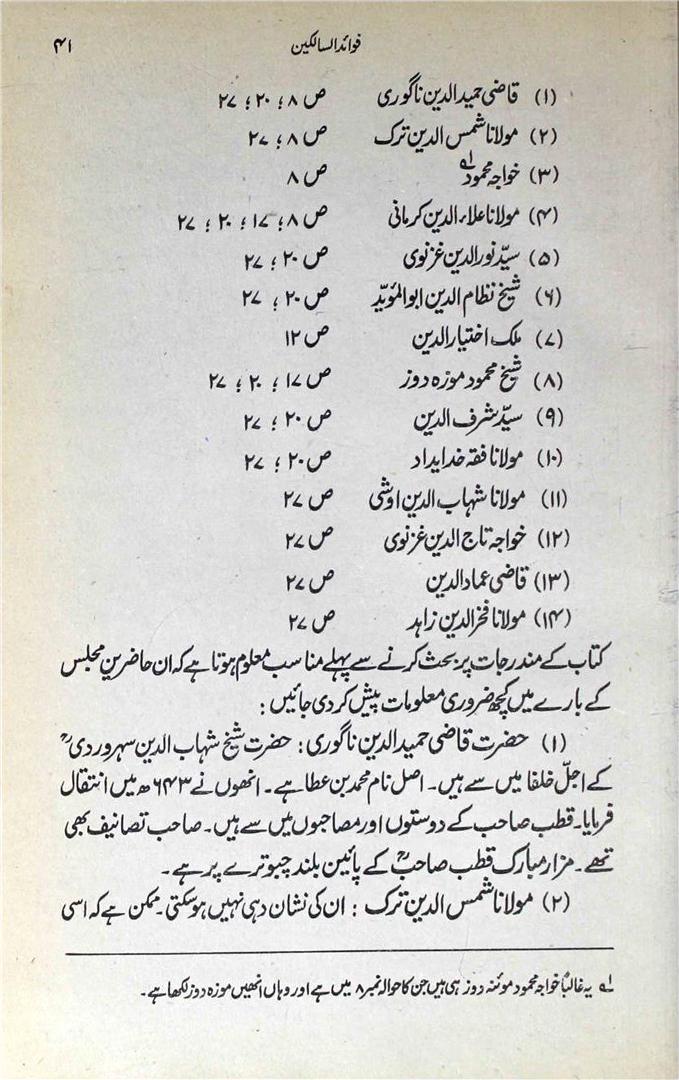 فوائد السالکین ۴۱
(۱) قاضی حمید الدین ناگوری ص ۸ ؛ ۲۰ ؛ ۲۷
(۲) مولانا شمس الدین ترک ص ۸ ؛ ۲۷
(۳) خواجہ محمود لہ ص ۸
(۴) مولانا علاء الدین کرمانی ص ۸ ؛ ۱۷ ؛ ۲۰ ؛ ۲۷
(۵) سیّد نور الدین غزنوی ص ۲۰ ؛ ۲۷
(۶) شیخ نظام الدین ابوالمُویّد ص ۲۰ ؛ ۲۷
(۷) ملک اختیار الدین ص ۱۲
(۸) شیخ محمود موزہ دوز ص ۱۷ ؛ ۲۰ ؛ ۲۷
(۹) سیّد شرف الدین ص ۲۰ ؛ ۲۷
(۱۰) مولانا فقہ خدایداد ص ۲۰ ؛ ۲۷
(۱۱) مولانا شہاب الدین اوشی ص ۲۷
(۱۲) خواجہ تاج الدین غزنوی ص ۲۷
(۱۳) قاضی عماد الدین ص ۲۷
(۱۴) مولانا فخر الدین زاہد ص ۲۷
کتاب کے مندرجات پر بحث کرنے سے پہلے مناسب معلوم ہوتا ہے کہ ان حاضرینِ مجلس
کے بارے میں کچھ ضروری معلومات پیش کر دی جائیں :
(۱) حضرت قاضی حمید الدین ناگوری : حضرت شیخ شہاب الدین سہروردیؒ
کے اجلّ خلفا میں سے ہیں۔ اصل نام محمد بن عطا ہے۔ انھوں نے ۶۴۳ھ میں انتقال
فرمایا۔ قطب صاحب کے دوستوں اور مصاحبوں میں سے ہیں۔ صاحب تصانیف بھی
تھے۔ مزار مبارک قطب صاحبؒ کے پائین بلند چبوترے پر ہے۔
(۲) مولانا شمس الدین ترک : ان کی نشان دہی نہیں ہو سکتی۔ ممکن ہے کہ اسی
لہ یہ غالباً خواجہ محمود موئنہ دوز ہی ہیں جن کا حوالہ نمبر ۸ میں ہے اور وہاں انھیں موزہ دوز لکھا ہے۔